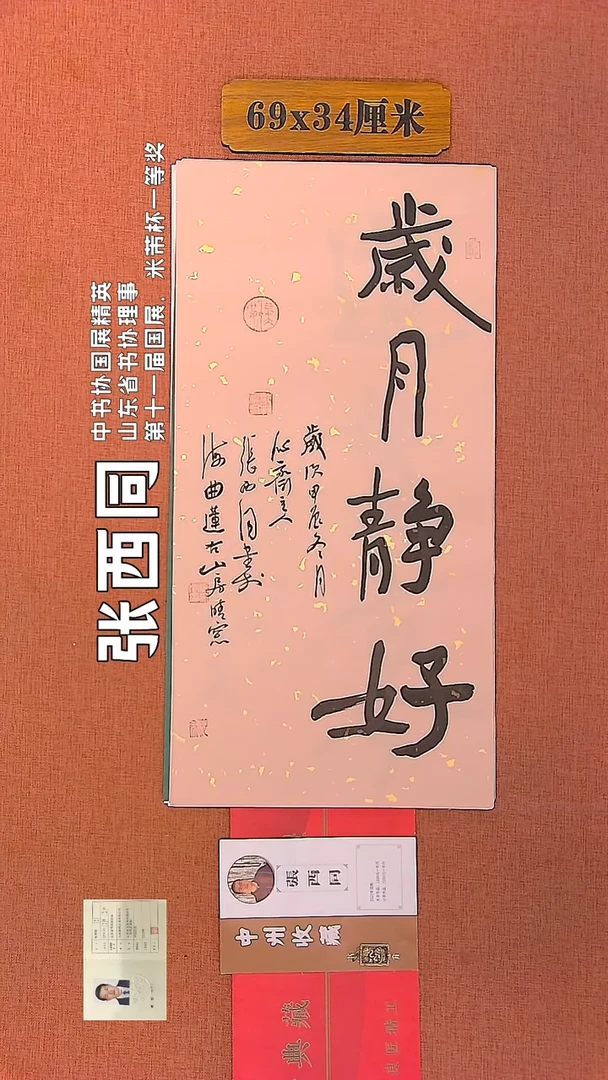 69x34厘米
歲月静好
歲次甲辰冬月
心齋主人
張西同書於
海曲蓮古山房晴窓
张西同
中书协国展精英
山东省书协理事
第十一届国展、米芾杯一等奖
張西同
中州收藏
典藏
良匠精工